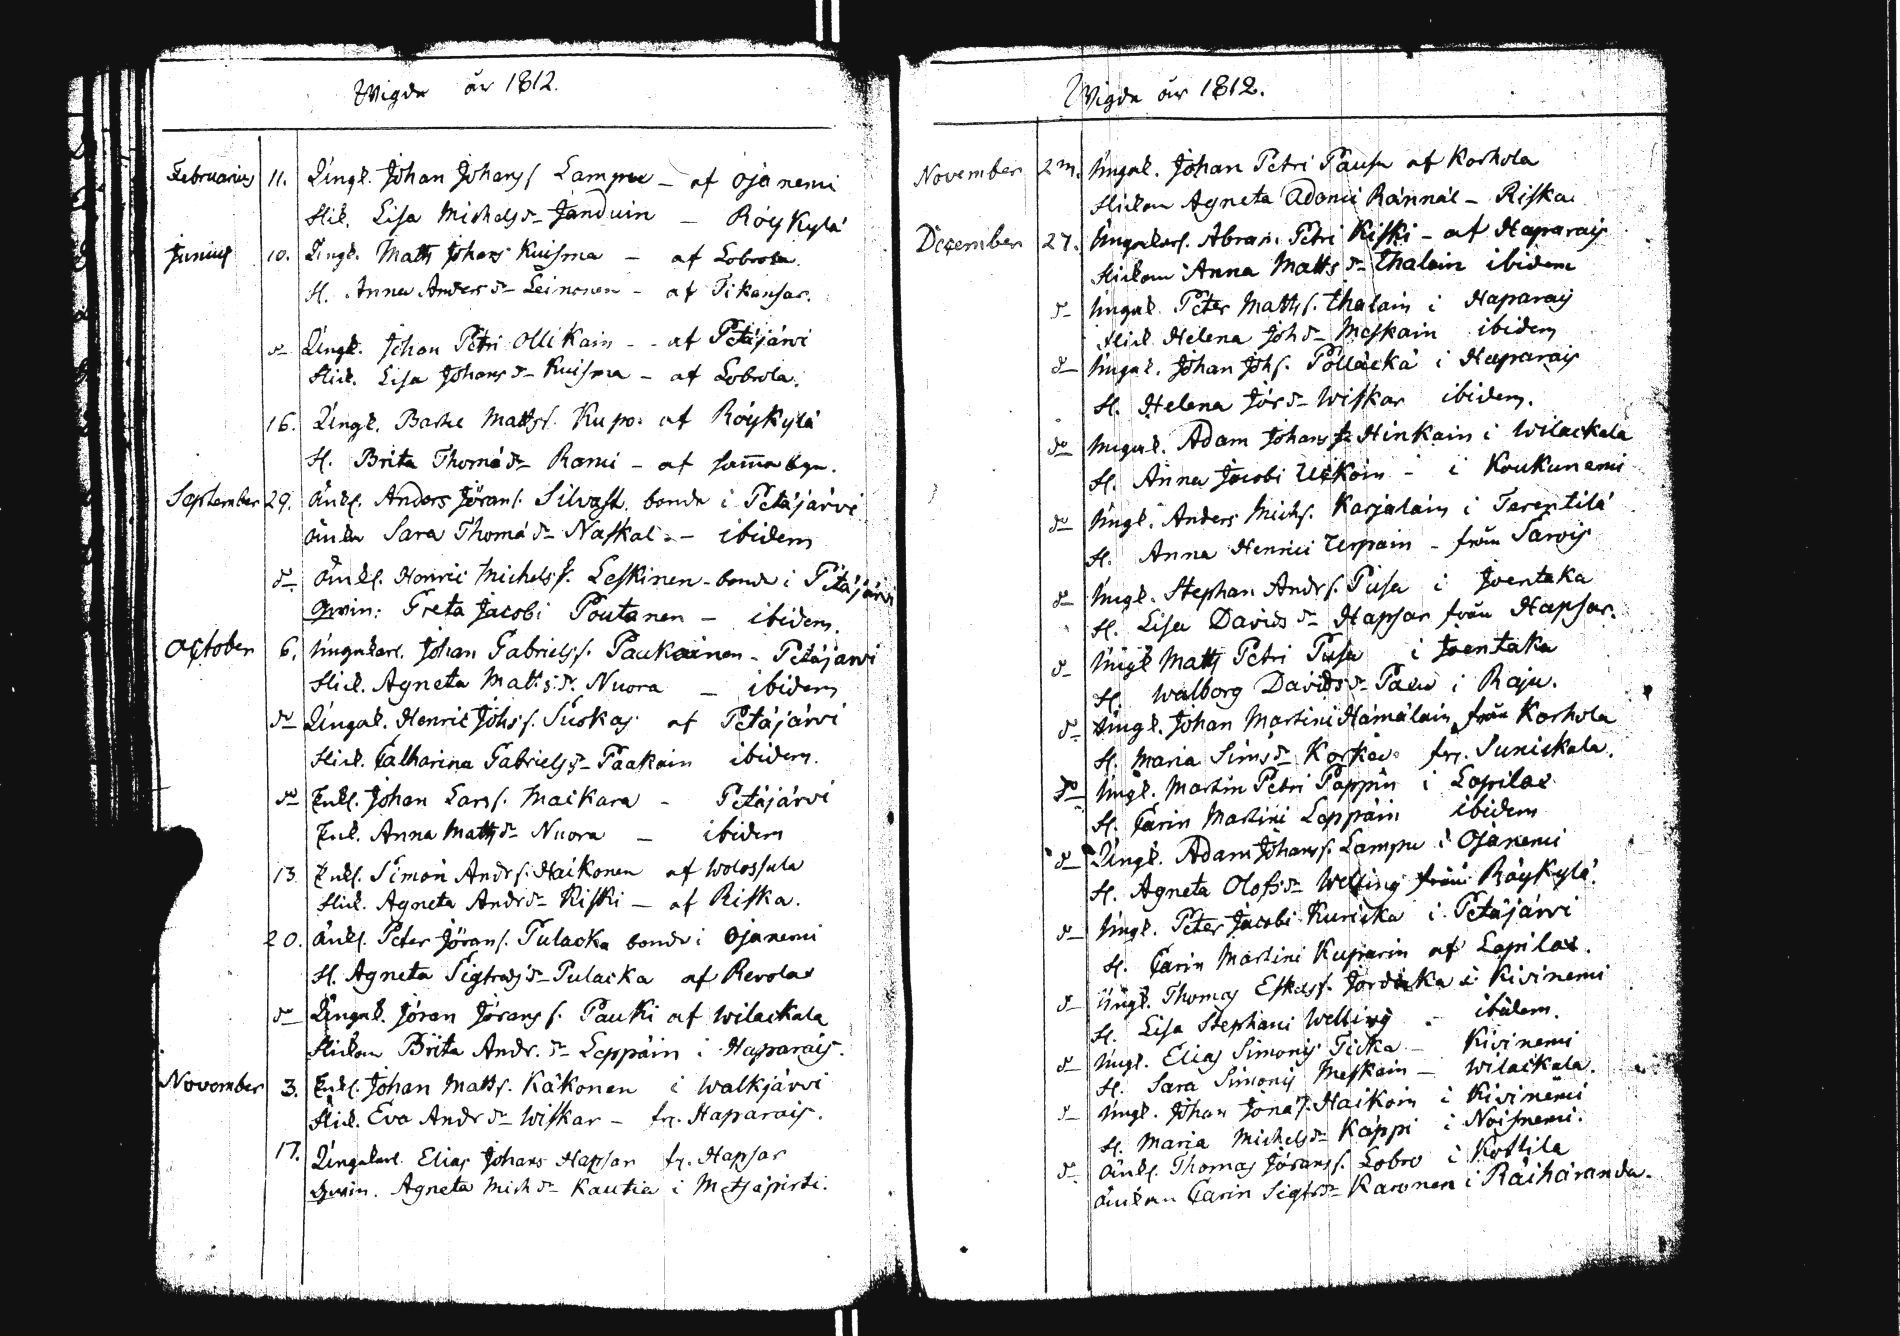 Wigda år 1812.
Februarius 11. Üngk. Johan Johanss. Lampu – af Ojanemi
Hustr. Lisa Michelsd:r Janduin – Röykylä
Junius 10. Üngk. Matts Johans Kuisma – af Lobrola
H. Anna Andersd:r Leinonen – af Tikansar.
d:o Üngk. Johan Petri Ollikain – af Petäjärvi
Lisa Johansd:r Kuisma – af Lobrola.
16. Üngk. Matts. Kupo: af Röykylä
H. Brita Thomæd:r Rami – af samma
September 29. Änkl. Anders Jörans. Silvast. bonde i Petäjärvi
Änkan Sara Thomæd:r Naskal – ibidem
d:o Änkl. Henric Michelss. Leskinen – bonde i Petäjärvi
Qwin: Greta Jacobi Poutanen – ibidem.
October 6. Üngkarl. Johan Gabrielss. Paukainen – Petäjärvi
Agneta Mattsd:r Nuora – ibidem
d:o Üngk. Henric Johss. Suokas af Petäjärvi
Catharina Gabrielsd:r Paakain ibidem.
d:o Enkl. Johan Larss. Maikara – Petäjärvi
Enk. Anna Mattsd:r Nuora – ibidem
13. Enkl. Simon Andrs. Haikonen af Wolossula
Agneta Andrsd:r Kiski – af Riska.
20. Änkl. Peter Jörans. Pulacka bonde i Ojanemi
H. Agneta Sigfredsd:r Pulacka af Revola
d:o Üngk. Jöran Jöranss. Pauki af Wilackala
Brita Andr.d:r Leppäin i Haparais.
November 3. Enkl. Johan Matts. Käkonen i Walkjärvi
Eva Andrd:r Wiskar – fr. Haparais.
17. Üngkarl Elias Johans Hapsar fr. Hapsar
Qwin. Agneta Michd:r Kautia i Metsäpirti.
Wigda år 1812.
November Üngk. Johan Petri Pausu af Korhola
Agneta Adami Rännäl – Riska
December 27. Üngkarl. Abram Petri Kiski – af Haparais
Anna Mattsd:r Ihalain ibidem
d:o Üngk. Peter Mattss. Ihalain i Haparais
Helena Johd:r Meskain ibidem
d:o Üngk. Johan Johs. Pölläckä i Haparais
H. Helena Jörd:r Wiskar ibidem.
d:o Üngk. Adam Johanss. Hinkain i Wilackala
H. Anna Jacobi Uskoin – i Koukunemi
d:o Üngk. Anders Michs. Karjalain i Terentilä
H. Anna Henrici Urpain – från Sarvis
d:o Üngk. Stephan Andrs. Pusa i Joentaka
H. Lisa Davidsd:r Hapsar från Hapsar.
d:o Üngk Matts Petri Pusa i Joentaka
H. Walborg Davidsd:r Paew i Raju.
d:o Üngk. Johan Martini Hämäläin från Korhola
H. Maria Simsd:r fr. Sunickala.
d:o Üngk. Martin Petri Pappin i Lapilax
H. Carin Martini Leppäin ibidem
d:o Üngk. Adam Johanss. Lampu i Ojanemi
H. Agneta Olofsd:r Welling från Röykylä.
d:o Üngk. Peter Jacobi Kuricka i Petäjärvi
H. Carin Martini Kuparin af Lapilax.
d:o Üngk. Thomas Eskelss. i Kivinemi
H. Lisa Stephani Welling – ibidem.
d:o Üngk. Elias Simonis Ticka – Kivinemi
H. Sara Simonis Meskain – Wilackala.
d:o Üngk. Johan Jonæs. Haikoin i Kivinemi
H. Maria Michelsd:r Käppi i Noisnemi.
d:o Änkl. Thomas Jöranss. Lobro i Kottila
Änkan Carin Sigfrd:r Karonen i Räihäranda.